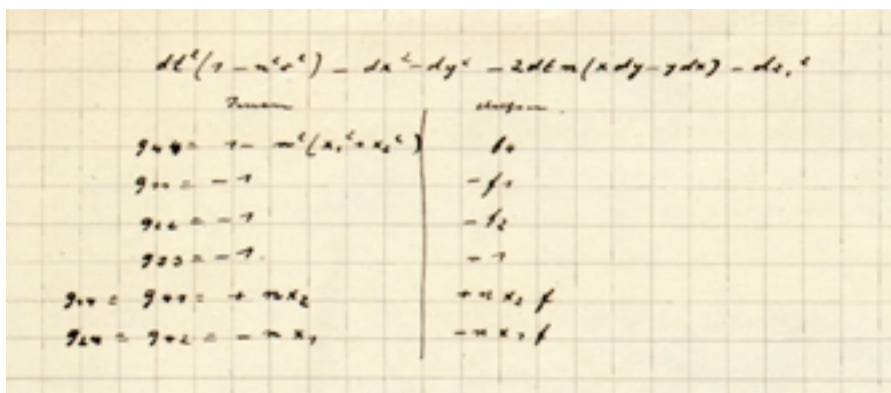 dt²(1 – n²r²) – dx² – dy² – 2dtn(xdy – ydx) – dz₁²
Innen
g₄₄ = 1 – n²(x₁² + x₂²) f₄
g₁₁ = – 1 – f₁
g₂₂ = – 1 – f₂
g₃₃ = – 1 – 1
g₁₄ = g₄₁ = + nx₂ + n x₂ f
g₂₄ = g₄₂ = – n x₁ – n x₁ f